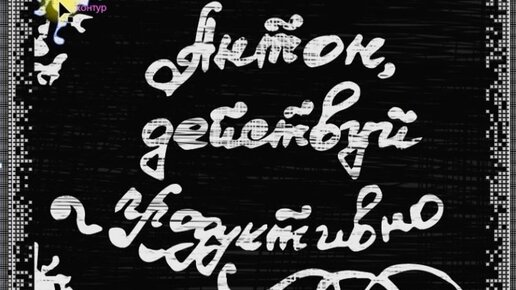 контур
Антон,
действуй
продуктивно